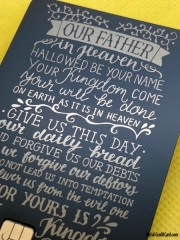 OUR FATHER
in heaven
HALLOWED BE YOUR NAME
your Kingdom COME
Your will be done
ON EARTH AS IT IS IN HEAVEN
GIVE US THIS DAY
our daily bread
FORGIVE US OUR DEBTS
we forgive our debtors
NOT LEAD US INTO TEMPTATION
us from the evil one
FOR YOURS IS
Kingdom